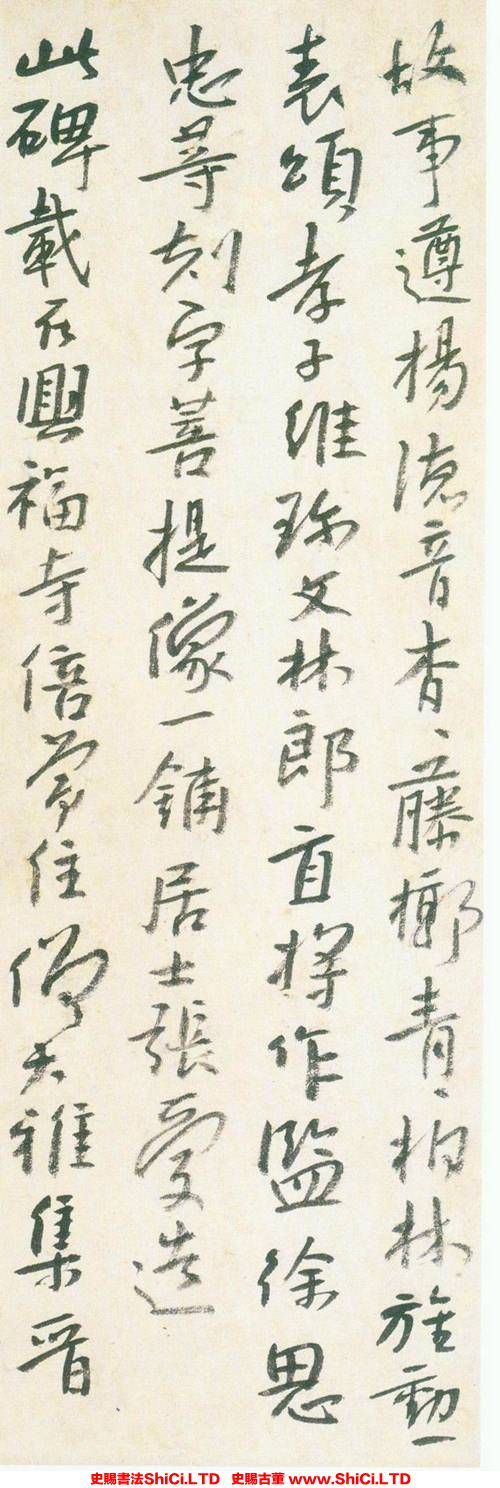 故事遵揚德音杳〻藤槨青〻柏林旌勳
表頌孝子維珎文林郎直將作監徐思
忠等刻字菩提像一鋪居士張愛造
此碑載在興福寺倍常住僧大雅集晉
史賜書法ShiCi.LTD 史賜古董 www.ShiCi.LTD